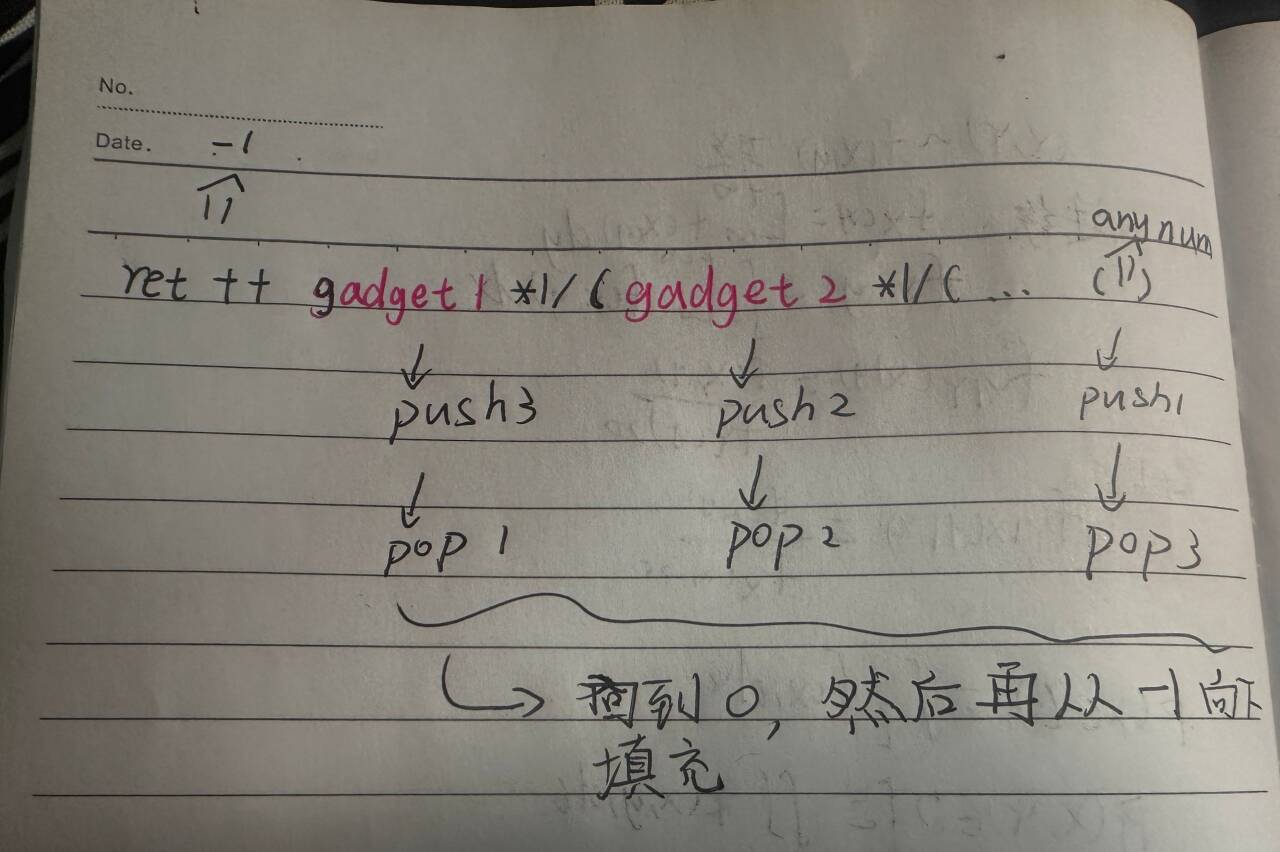 No.
Date. -1
anynum
ret ++ gadget 1 *1/( gadget 2 *1/( ... ( )
push3 push2 push1
pop 1 pop 2 pop 3
回到0, 然后再从-1向下
填充